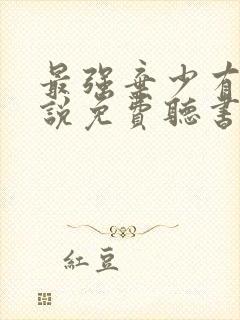 最强弃少有
說免費聽書
紅豆